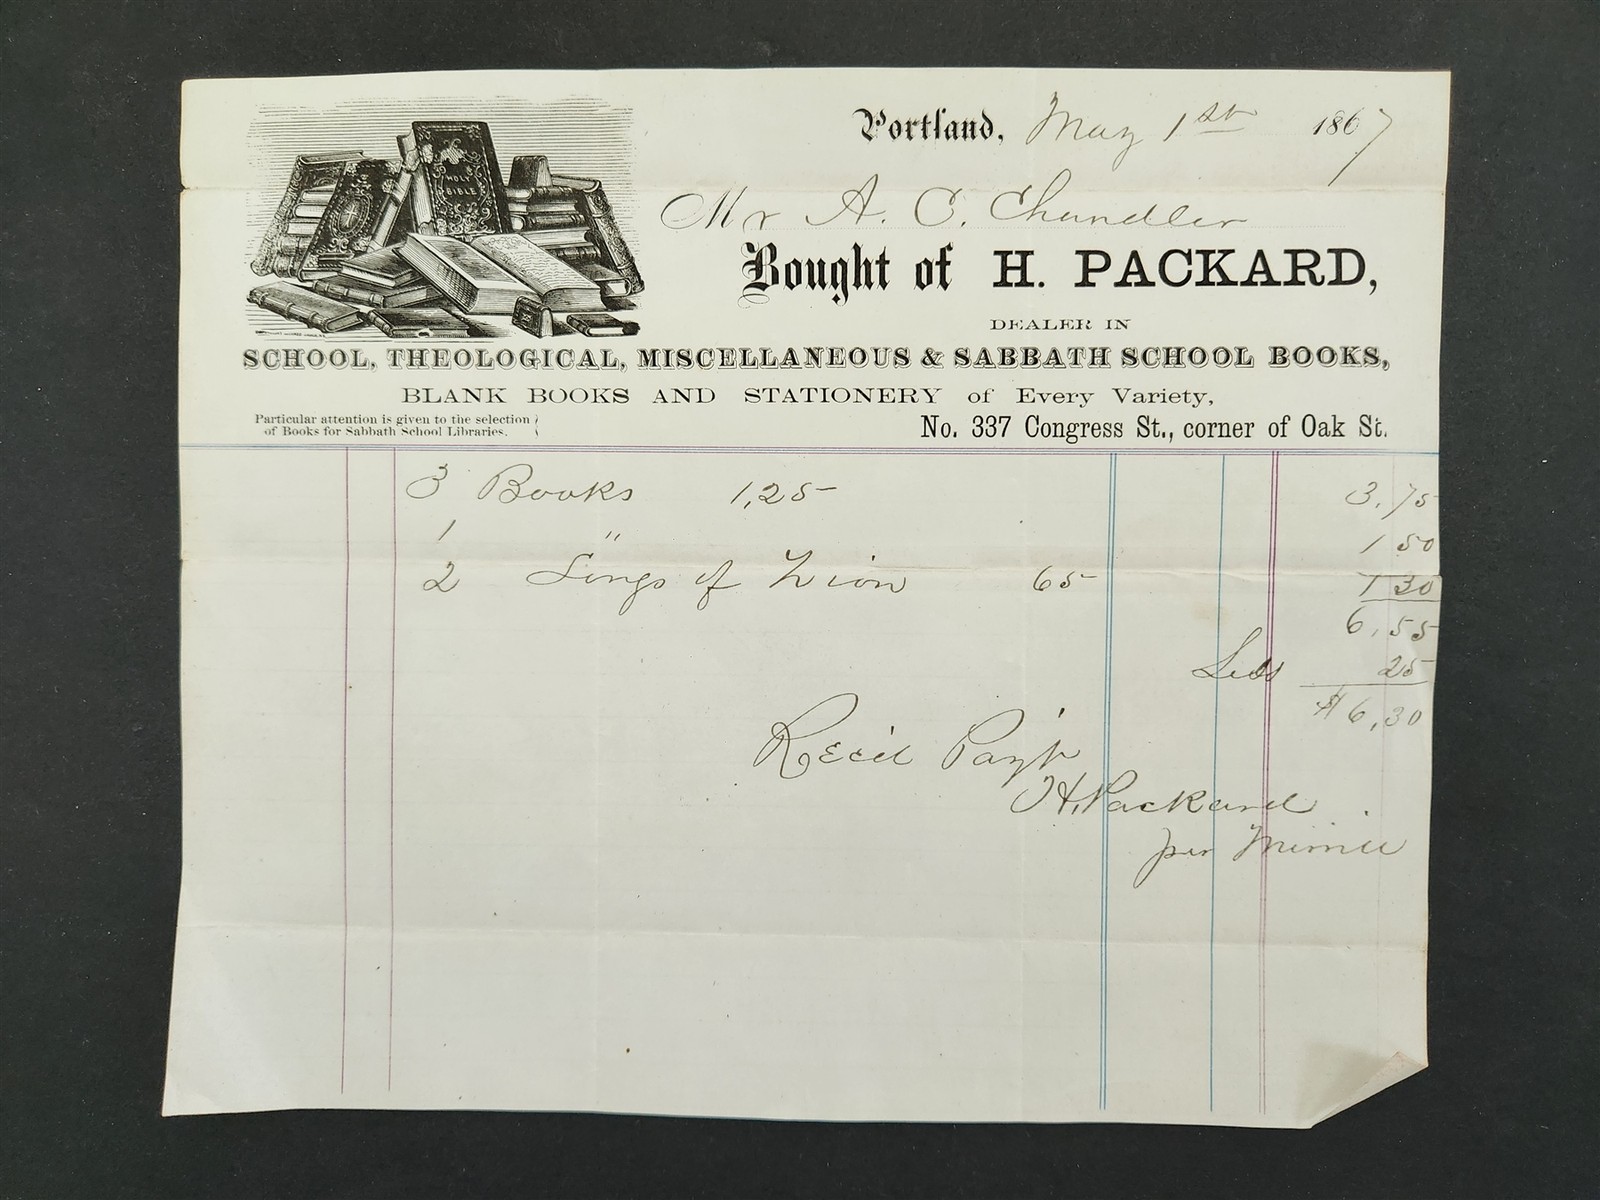 Portland, May 1st 1867
Mr A. C. Chandler
HOLY BIBLE
Bought of H. PACKARD,
DEALER IN
SCHOOL, THEOLOGICAL, MISCELLANEOUS & SABBATH SCHOOL BOOKS,
BLANK BOOKS AND STATIONERY of Every Variety,
Particular attention is given to the selection
of Books for Sabbath School Libraries.
No. 337 Congress St., corner of Oak St.
3 Books 1,25 3,75
1 " 1 50
2 Songs of Zion 65 1 30
6,55
Less 25
$6,30
Recd Payt
H. Packard
per